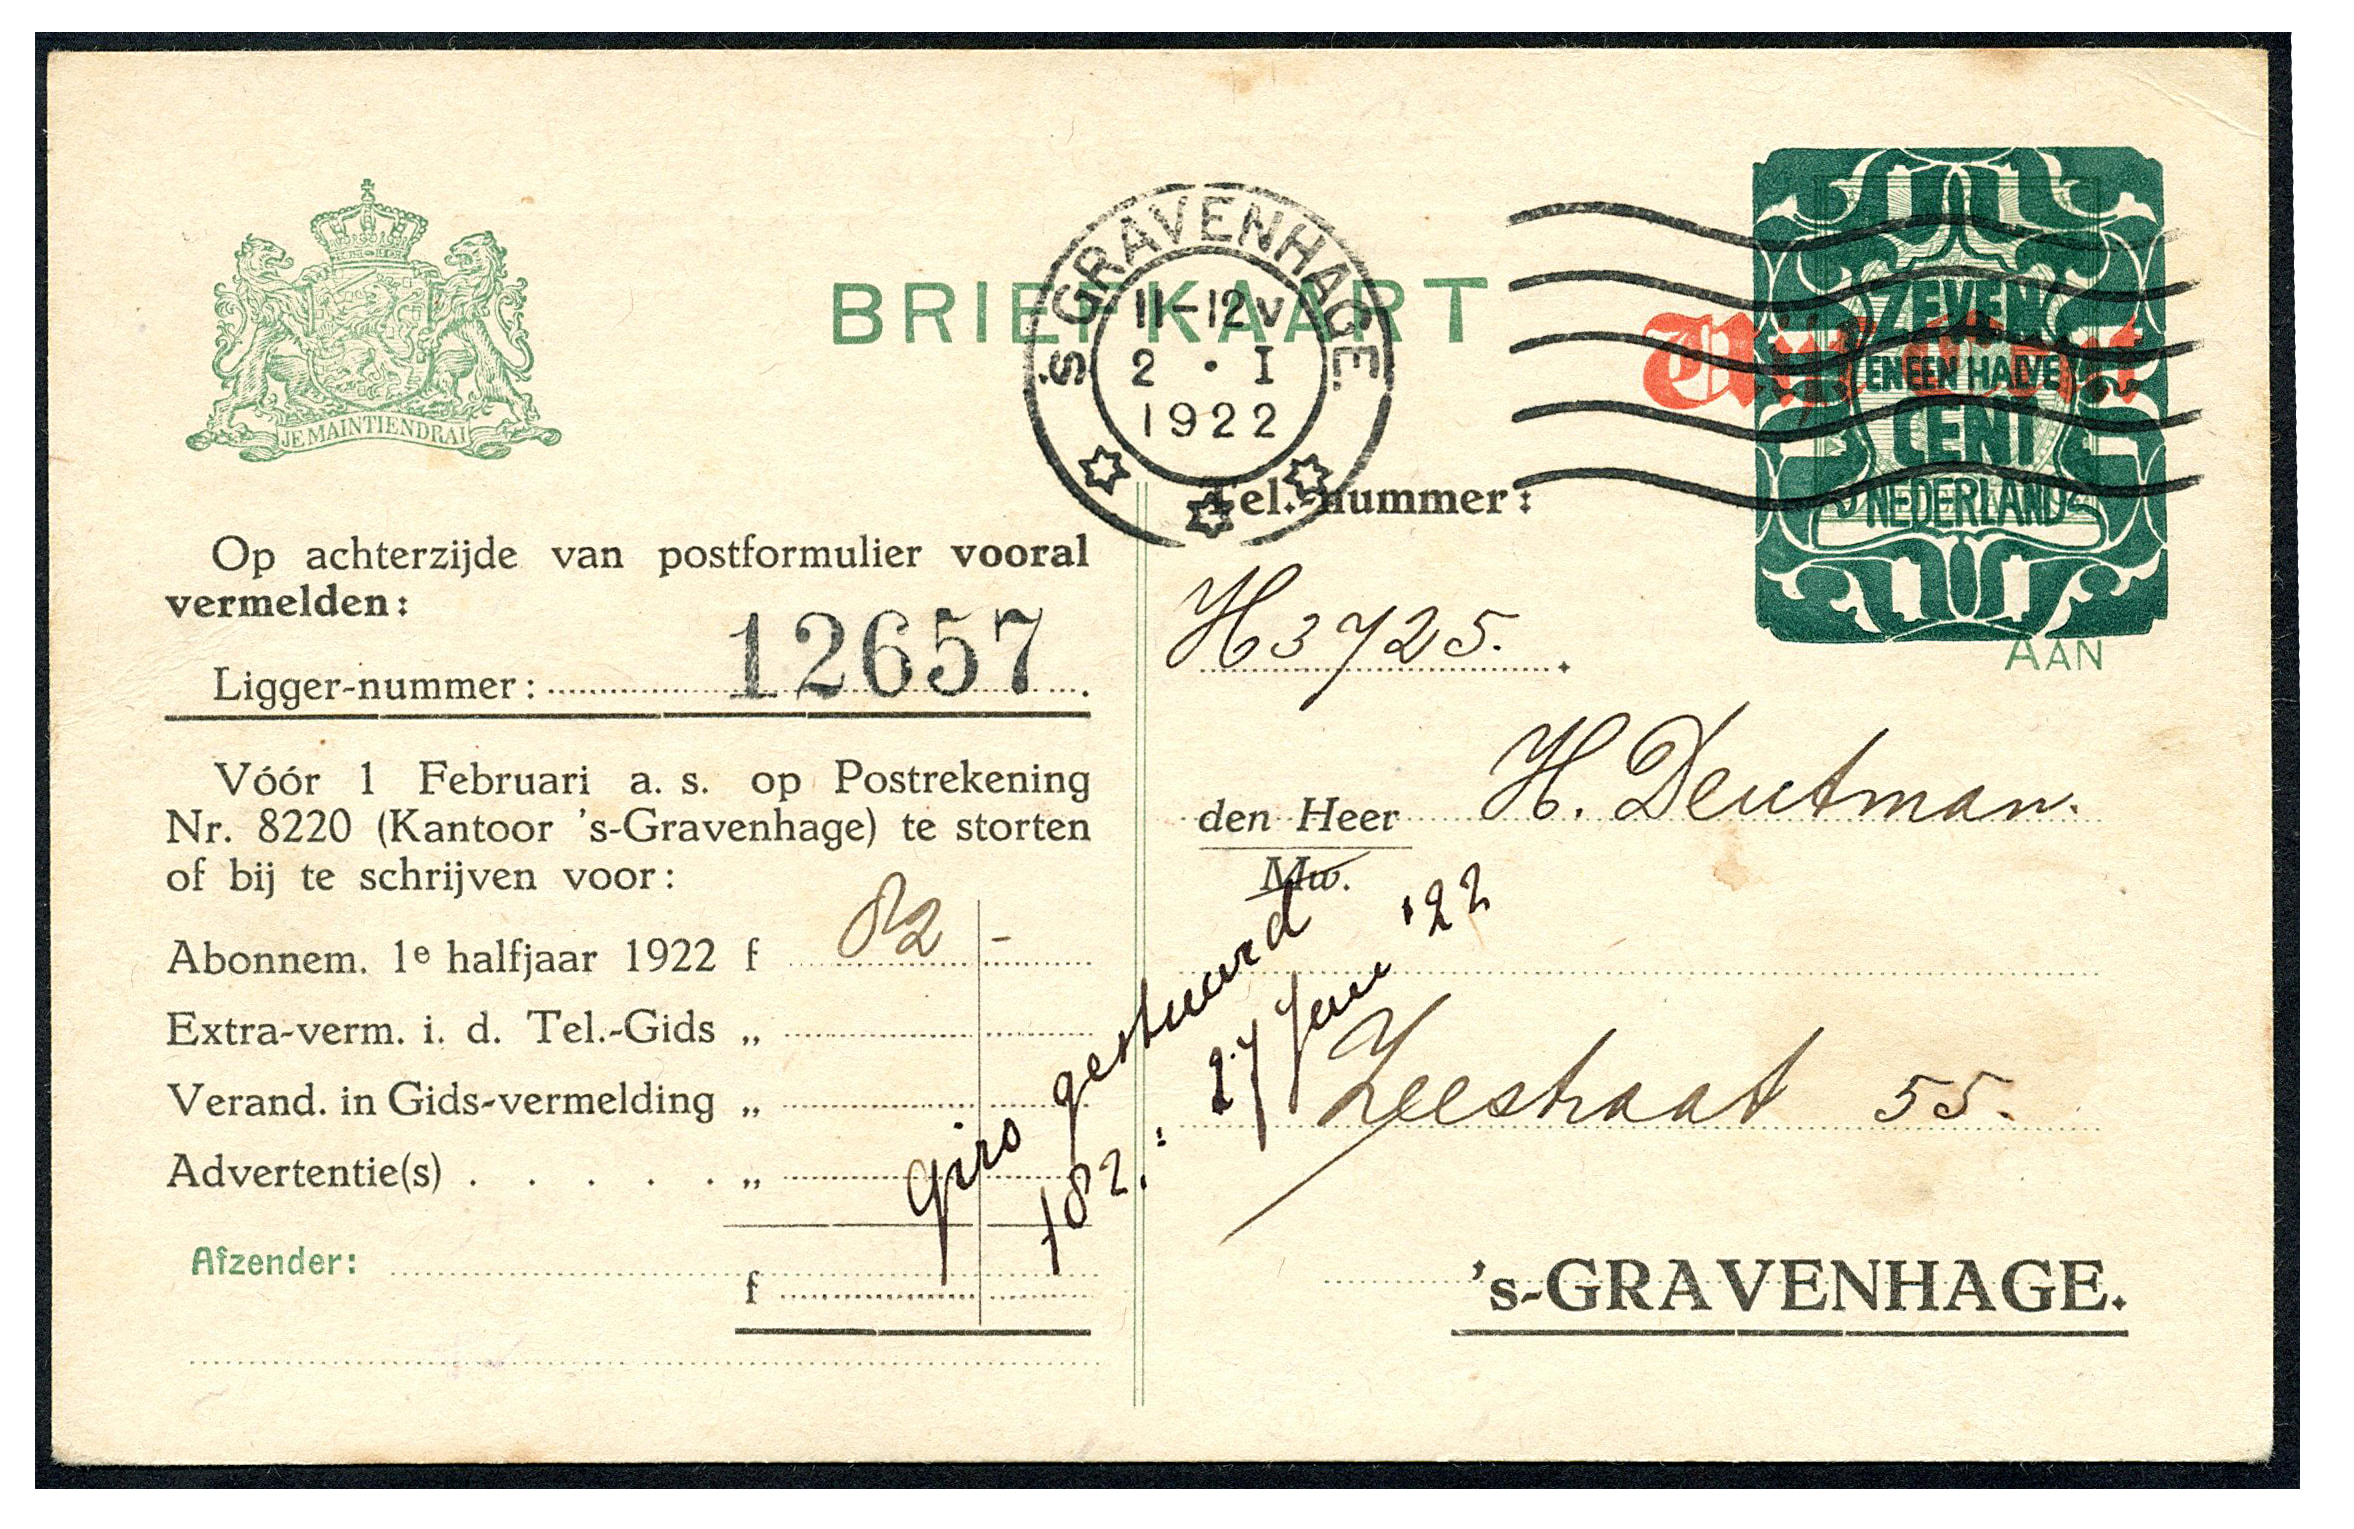 JE MAINTIENDRAI
BRIEFKAART
'S GRAVENHAGE.
11-12V
2 · I
1922
Vijf Cent
ZEVEN
EN EEN HALVE
CENT
NEDERLAND
AAN
Op achterzijde van postformulier vooral
vermelden:
Ligger-nummer: 12657
Vóór 1 Februari a. s. op Postrekening
Nr. 8220 (Kantoor 's-Gravenhage) te storten
of bij te schrijven voor:
Abonnem. 1e halfjaar 1922 f 82 -
Extra-verm. i. d. Tel.-Gids „
Verand. in Gids-vermelding „
Advertentie(s) . . . . . „
Afzender:
f
giro gestuurd
f 82.
27 Jan '22
Tel.-nummer:
H3725.
den Heer H. Deutman.
Mw.
Zeestraat 55.
's-GRAVENHAGE.